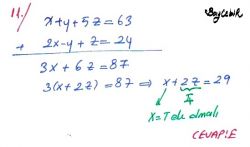 11.)
Baylenik
x+y+5z=63
+ 2x-y+z=24
3x+6z=87
3(x+2z)=87 ⇒ x+2z=29
x=Tek olmalı
CEVAP: E